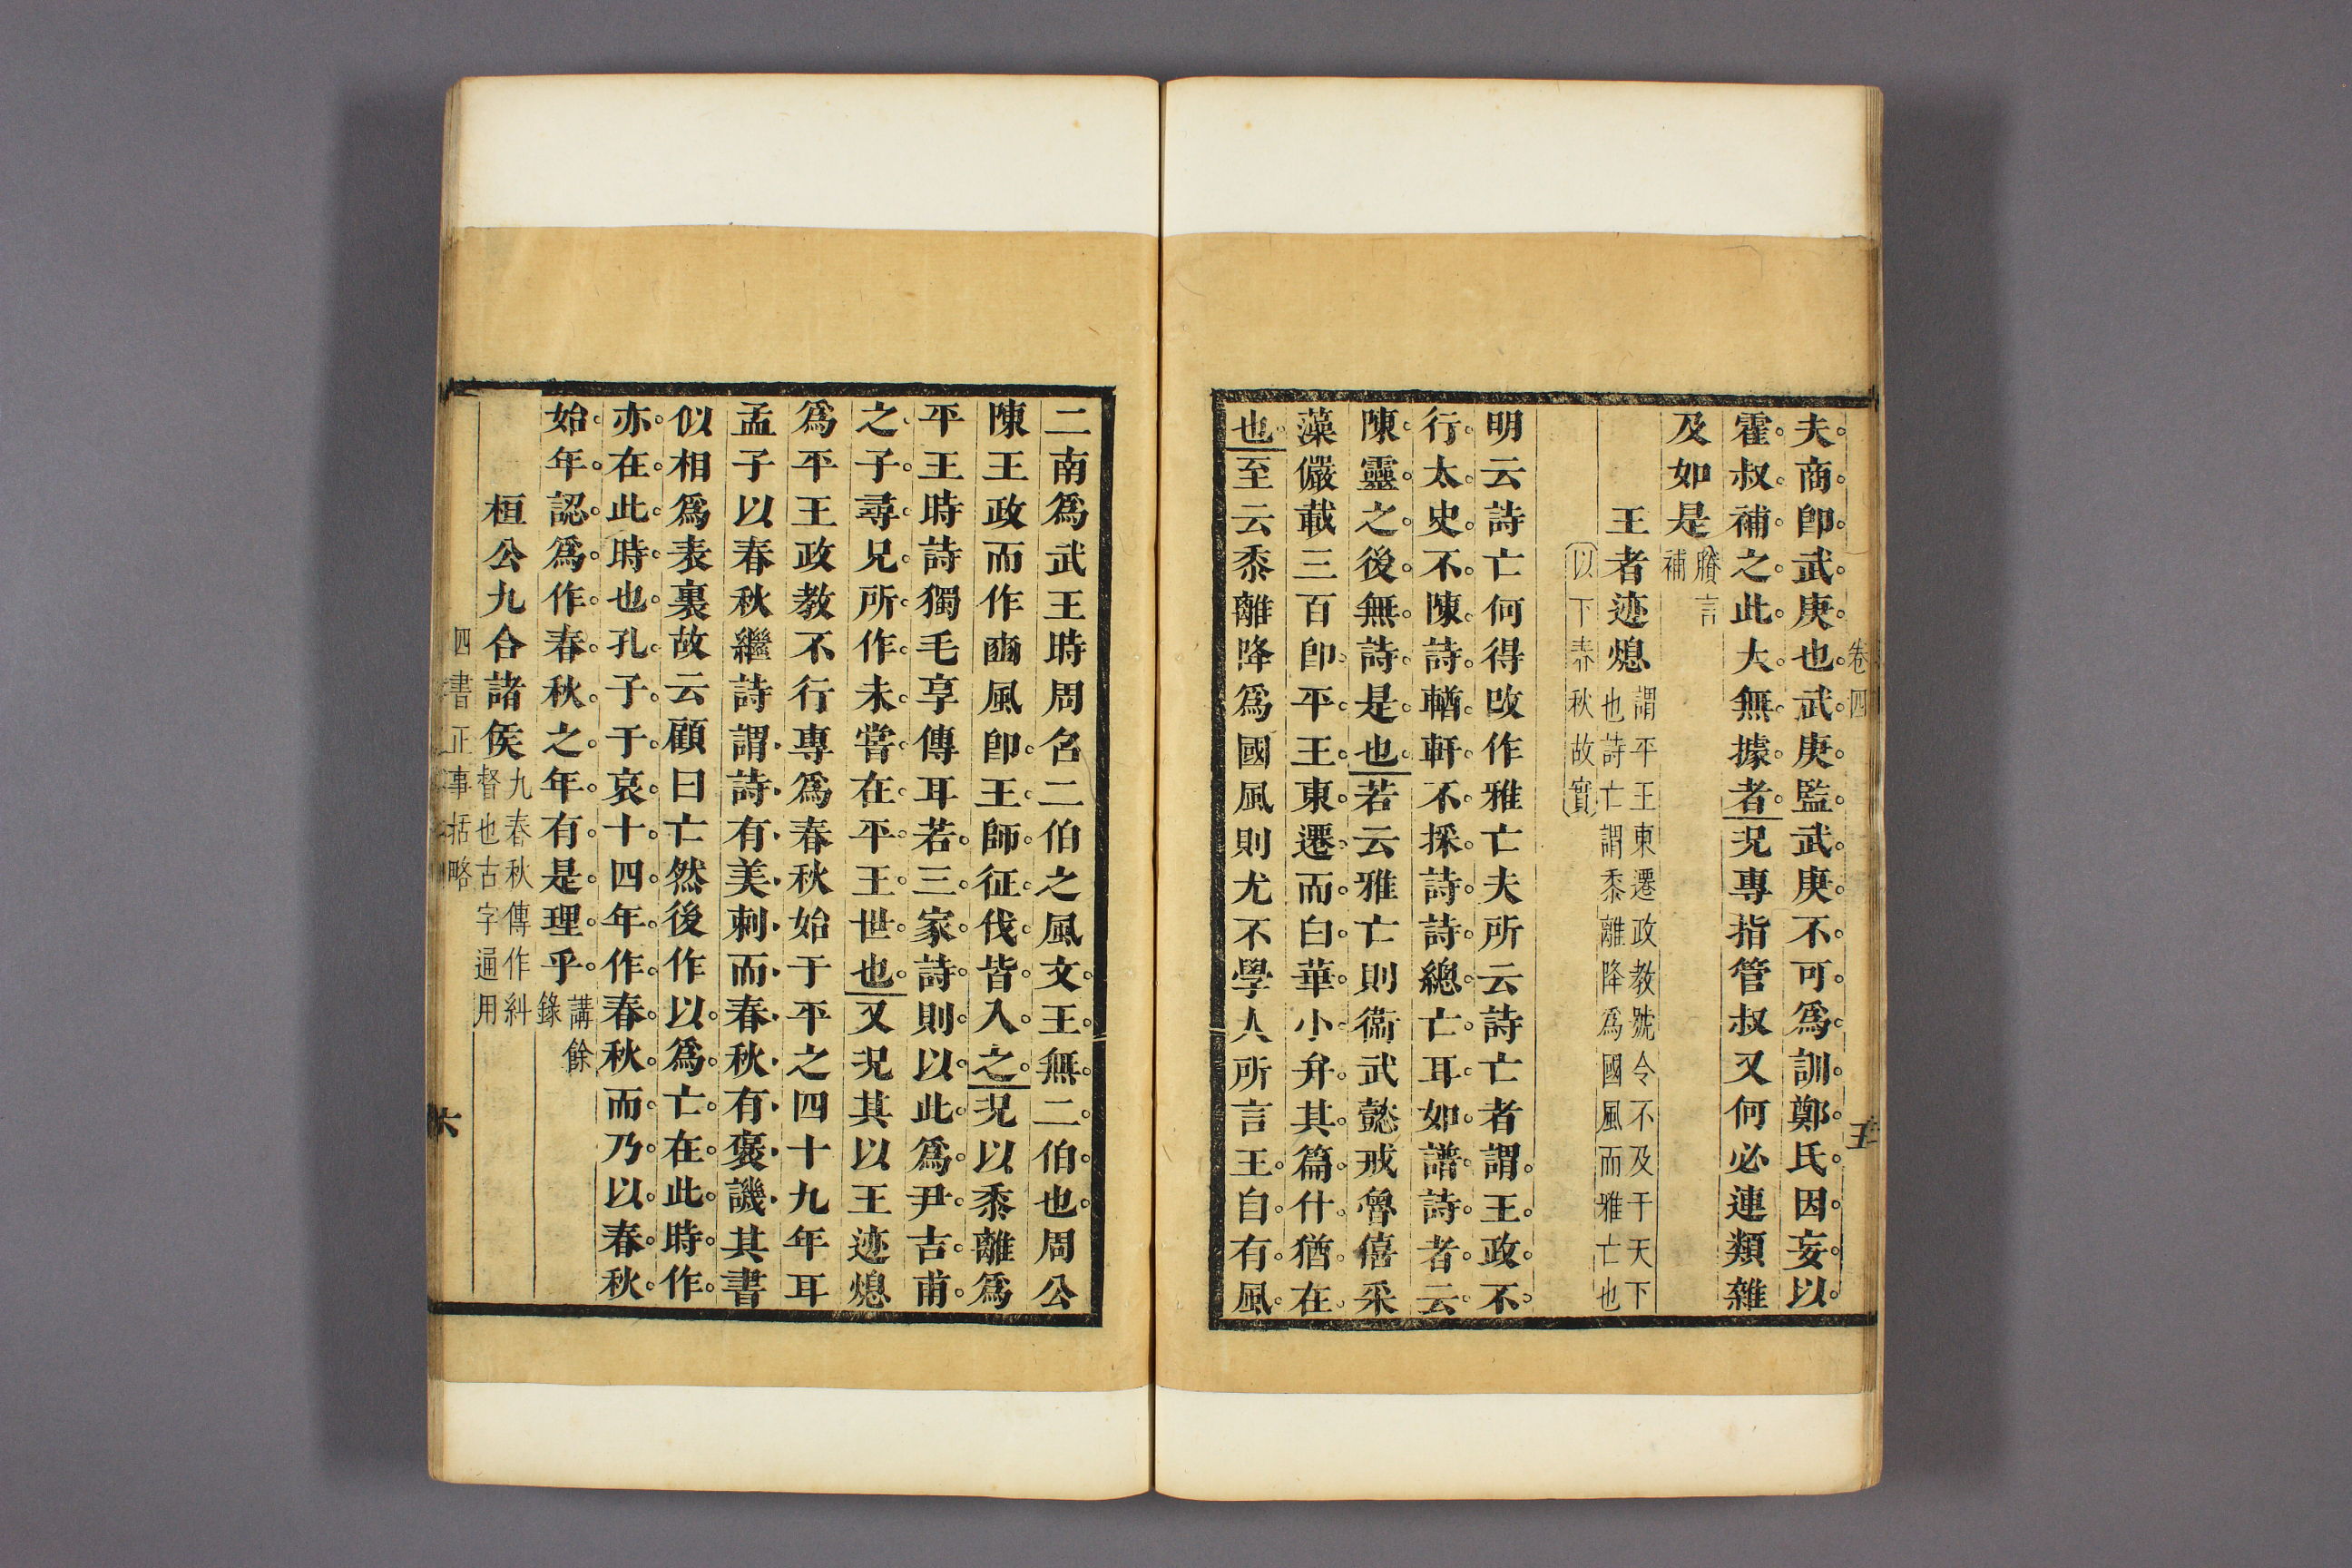 卷四
五
夫商卽武庚也武庚監武庚不可爲訓鄭氏因妄以
霍叔補之此大無據者況專指管叔又何必連類雜
及如是賸言
補
王者迹熄謂平王東遷政教號令不及于天下
也詩亡謂黍離降爲國風而雅亡也
以下春秋故實
明云詩亡何得改作雅亡夫所云詩亡者謂王政不
行太史不陳詩輶軒不採詩詩總亡耳如譜詩者云
陳靈之後無詩是也若云雅亡則衞武懿戒魯僖采
藻儼載三百卽平王東遷而白華小弁其篇什猶在
也至云黍離降爲國風則尤不學人所言王自有風
二南爲武王時周召二伯之風文王無二伯也周公
陳王政而作豳風卽王師征伐皆入之況以黍離爲
平王時詩獨毛享傳耳若三家詩則以此爲尹吉甫
之子尋兄所作未嘗在平王世也又況其以王迹熄
爲平王政教不行專爲春秋始于平之四十九年耳
孟子以春秋繼詩謂詩有美刺而春秋有褒譏其書
似相爲表裏故云顧曰亡然後作以爲亡在此時作
亦在此時也孔子于哀十四年作春秋而乃以春秋
始年認爲作春秋之年有是理乎講餘
錄
桓公九合諸侯九春秋傳作糾
督也古字通用
四書正事括略
六